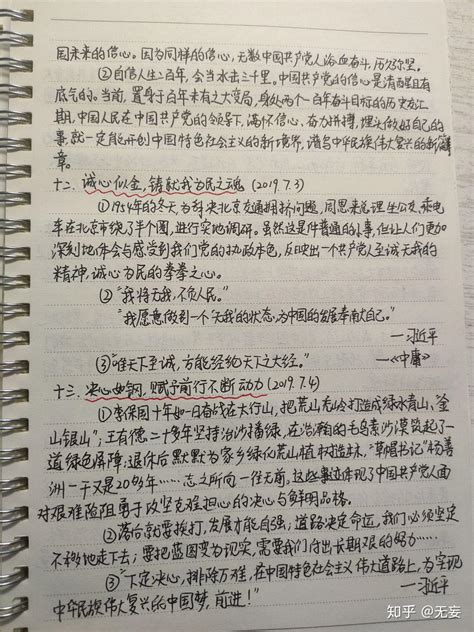 国未来的信心。因为同样的信心,无数中国共产党人浴血奋斗、历久弥坚。
②自信人生二百年,会当水击三千里。中国共产党的信心是清醒且有
底气的。当前,置身于百年未有之大变局,身处两个一百年奋斗目标的历史交汇
期,中国人民在中国共产党的领导下,满怀信心、奋力拼搏,埋头做好自己的
事,就一定能开创中国特色社会主义的新境界,谱写中华民族伟大复兴的新篇
章。
十二、诚心似金,铸就我为民之魂(2019.7.3)
①1954年的冬天,为解决北京交通拥挤问题,周恩来总理坐公交、乘电
车在北京市绕了半个圈,进行实地调研。虽然这是件普通的小事,但让人们更加
深刻地体会与感受到我们党的执政本色,反映出一个共产党人至诚无我的
精神,诚心为民的拳拳之心。
②“我将无我,不负人民。”
“我愿意做到一个‘无我’的状态,为中国的发展奉献自己。”
—习近平
③“唯天下至诚,方能经纶天下之大经。” —《中庸》
十三、决心如钢,赋予前行不断动力(2019.7.4)
①李保国十年如一日奋战在太行山,把荒山秃岭打造成绿水青山、金
山银山”;王有德二十多年坚持治沙播绿,在浩瀚的毛乌素沙漠筑起了一
道绿色屏障;退休后默默为家乡绿化荒山植树造林,“草帽书记”杨善
洲一干又是20多年……志之所向一往无前,这些事迹体现了中国共产党人面
对艰难险阻勇于攻坚克难担心的决心与鲜明品格。
②落后就要挨打,发展才能自强;道路决定命运,我们必须坚定
不移地走下去;要把蓝图变为现实,需要我们付出长期艰的努力……
③“下定决心,排除万难,在中国特色社会主义伟大道路上,为实现
中华民族伟大复兴的中国梦,前进!” —习近平
知乎 @无妄